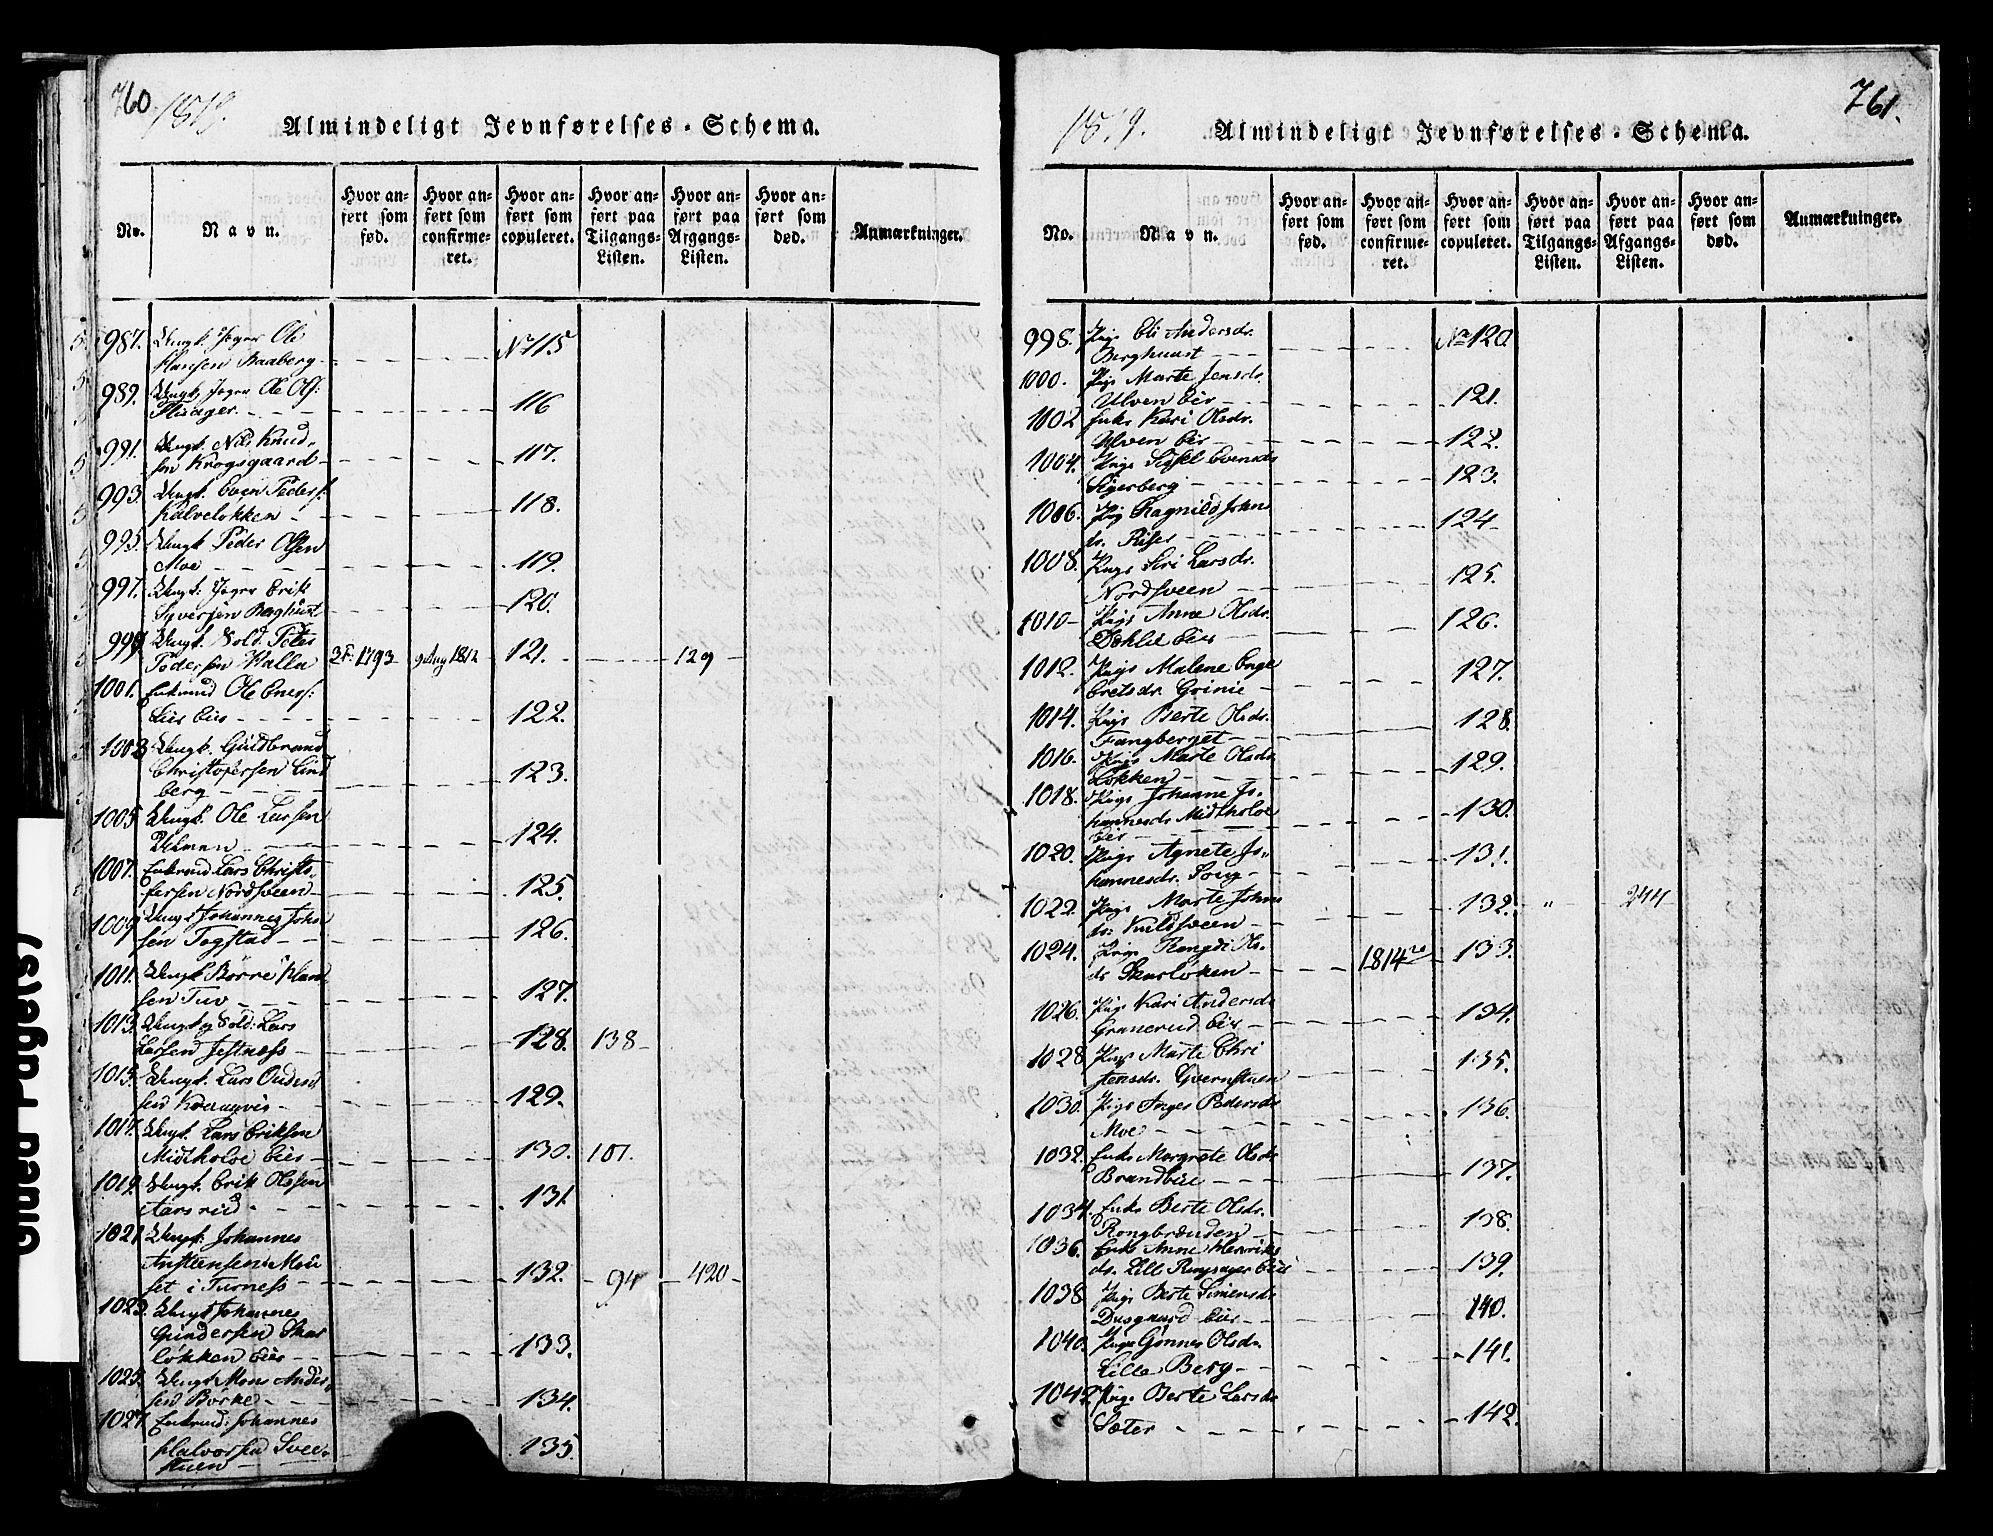 760
1819.
Almindeligt Jevnførelses-Schema.
No.
Navn.
Hvor an-
ført som
fød.
Hvor an-
ført som
confirme-
ret.
Hvor an-
ført som
copuleret.
Hvor an-
ført paa
Tilgangs-
Listen.
Hvor an-
ført paa
Afgangs-
Listen.
Hvor an-
ført som
død.
Anmærkninger.
987. Ungk. Jeger Ole
Hansen Baaberg - No 115
989. Ungk. Jeger Ole Ols:
116
991. Ungk. Nils Knud-
sen Krogsgaard - 117.
993. Ungk. Even Peders:
Kalveløkken - 118.
995. Ungk Peder Olsen
Moe - 119.
997. Ungk: Jeger Erik
Syversen Berghust 120.
999 Ungk. Sold. Peter
Pedersen Halla 1793 9 Aug 1812 121. 129
1001. Enkmd Ole Eners:
Eie 122.
1003 Ungk. Guldbrand
Christofersen Lind
berg 123.
1005 Ungk. Ole Larsen
124.
1007. Enkmd Lars Christo-
fersen Nordsveen 125
1009 Ungk Johannes John
sen Togstad 126.
1011. Ungk Børre Han
sen Tuv 127.
1013. Ungk og Sold: Lars
Larsen Jestness 128. 138
1015. Ungk. Lars
129.
1017. Ungk. Lars Eriksen
Midtholoe Eie 130. 101.
1019. Ungk. Erik Olssen
Aarsrud 131
1021. Ungk: Johannes
Anstensen Mou
set i Turness 132. 94 420
1023. Ungk Johannes
Gundersen Skar
løkken Eie 133.
1025. Ungk Mons Ander
sen Børke 134.
1027. Enkmd: Johannes
Halvorsen Svee-
stuen 135
761.
1819.
Almindeligt Jevnførelses-Schema.
No.
Navn.
Hvor an-
ført som
fød.
Hvor an-
ført som
confirme-
ret.
Hvor an-
ført som
copuleret.
Hvor an-
ført paa
Tilgangs-
Listen.
Hvor an-
ført paa
Afgangs-
Listen.
Hvor an-
ført som
død.
Anmærkninger.
998. Pige Eli Andersdr.
Berghuust No 120.
1000. Pige Marte Jensdr.
Ulven Eie 121.
1002 Enke Kari Olsdr.
Ulven Eie 122.
1004. Pige Sissel Evensdr
Sigerberg 123.
1006. Pig Ragnild John
dr. Riser 124
1008. Pige Siri Larsdr.
Nordsveen 125.
1010 Pige Anne Olsdr.
Dæhlie Eie 126.
1012. Pige Malene Enge
bretsdr. Grinie 127.
1014. Pige Berte Olsdr.
Fangberget 128.
1016. Pige Marte Olsdr
Løkken 129.
1018. Pige Johanne Jo-
hannesdr Midtholoe
Eie 130.
1020. Pige Agnete Jo-
hannesdr. 131.
1022. Pige Marte Johns
dr: 132. " 244
1024. Pige Rangdi Ols-
dr Skarløken 1814 133.
1026. Pige Kari Andersdr
Granerud Eie 134.
1028 Pige Marte Chri
stensdr. Qvernstuen 135.
1030. Pige Inger Pedersdr
Moe 136.
1032. Enke Margrete Olsdr
137.
1034. Enke Berte Olsdr.
138.
1036. Enke Anne Henriks
dr. Lille Ringsager Eie 139.
1038 Pige Berte Simensdr
Dusgaard Eie 140.
1040. Pige Gunner Olsdr
Lille Berg 141.
1042 Pige Berte Larsdr
Sæter 142.